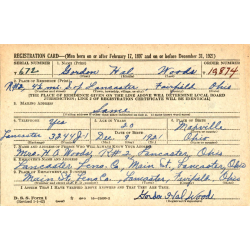 REGISTRATION CARD—(Men born on or after February 17, 1897 and on or before December 31, 1921)
SERIAL NUMBER 1. NAME (Print) ORDER NUMBER
Gordon Hal Woods 10,874
2. PLACE OF RESIDENCE (Print)
R#2 Lancaster Fairfield Ohio
[THE PLACE OF RESIDENCE GIVEN ON THE LINE ABOVE WILL DETERMINE LOCAL BOARD
JURISDICTION; LINE 2 OF REGISTRATION CERTIFICATE WILL BE IDENTICAL]
3. MAILING ADDRESS
Same
4. TELEPHONE 5. AGE IN YEARS 6. PLACE OF BIRTH
Yes 20 Maxville
DATE OF BIRTH
Lancaster Dec 1921 Ohio
7. NAME AND ADDRESS OF PERSON WHO WILL ALWAYS KNOW YOUR ADDRESS
Mrs. Woods, R#2 Lancaster, Ohio
8. EMPLOYER'S NAME AND ADDRESS
Lancaster Lens Co. Main St. Lancaster Ohio
9. PLACE OF EMPLOYMENT OR BUSINESS
Main St. Lens Co. Lancaster, Fairfield, Ohio
I AFFIRM THAT I HAVE VERIFIED ABOVE ANSWERS AND THAT THEY ARE TRUE.
D. S. S. Form 1
Gordon Hal Woods